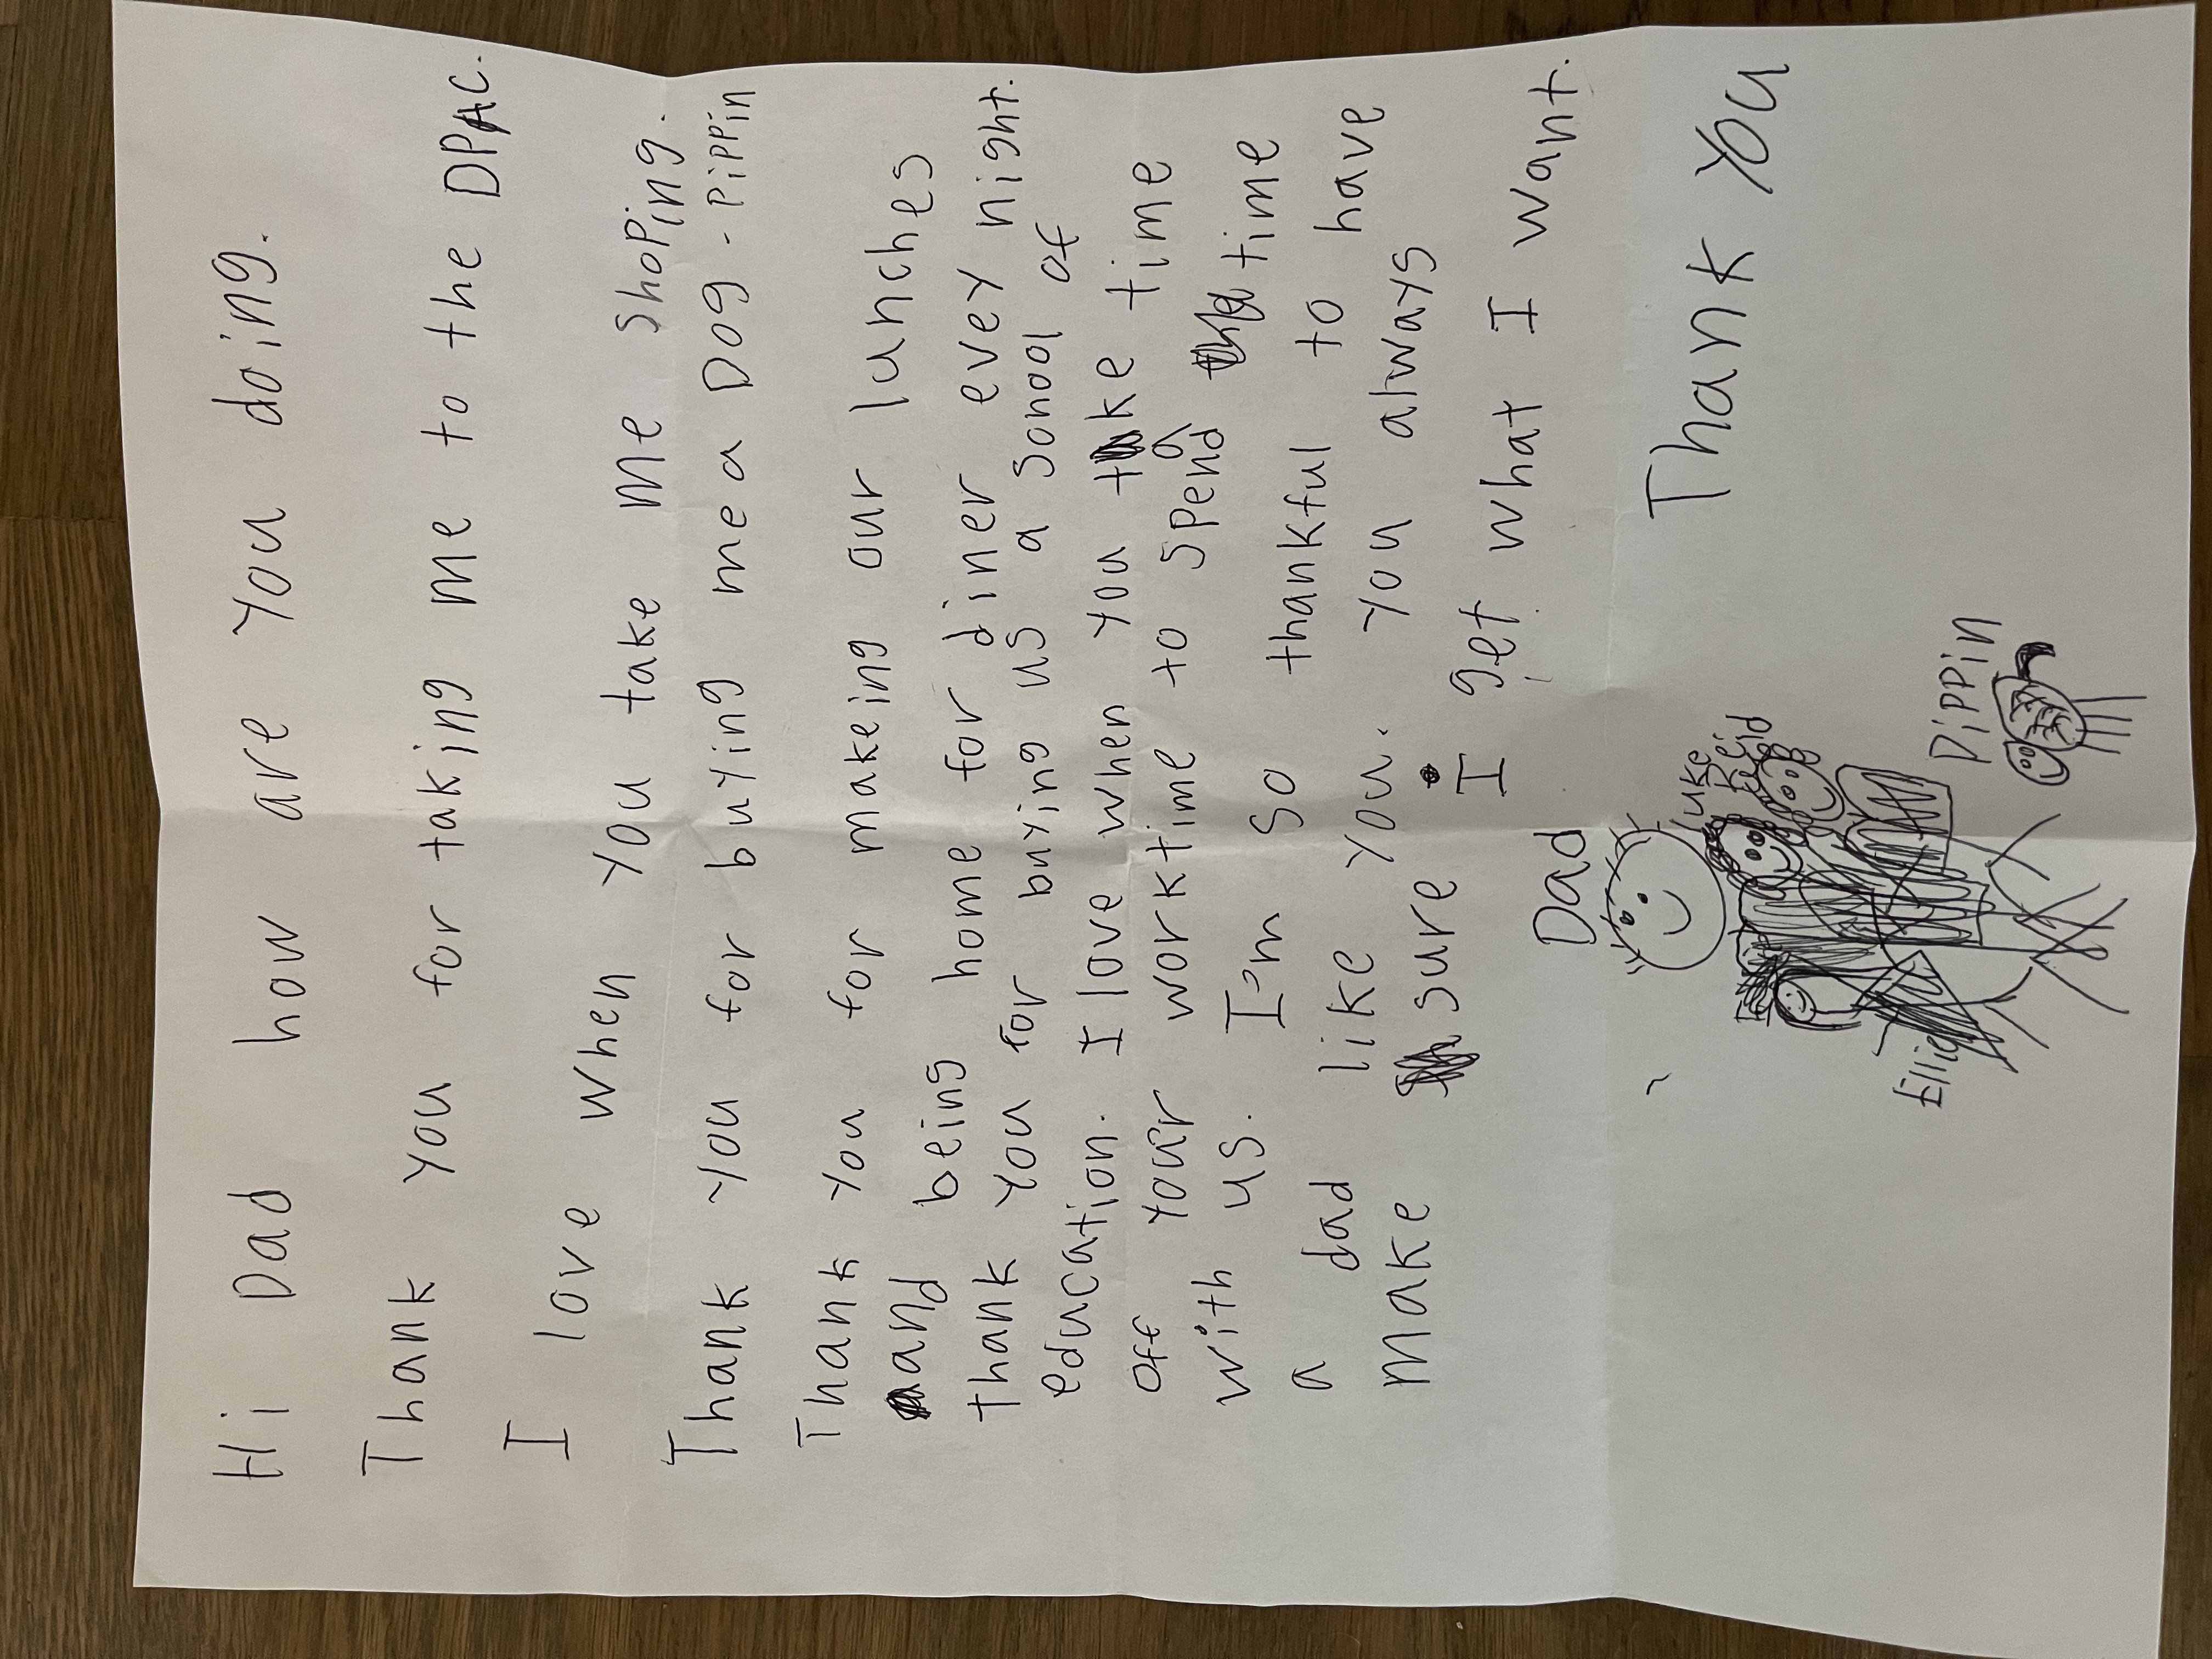 Hi Dad how are you doing.
Thank you for taking me to the DPAC.
I love when you take me shoping.
Thank you for buying me a Dog - Pippin
Thank you for makeing our lunches
and being home for diner evey night.
thank you for buying us a sonool of
education. I love when you take time
off your worktime to spend a time
with us. I'm so thankful to have
a dad like you. you always
make sure I get what I want.
Thank you
Dad
Luke
Reid
Ellie
Pippin